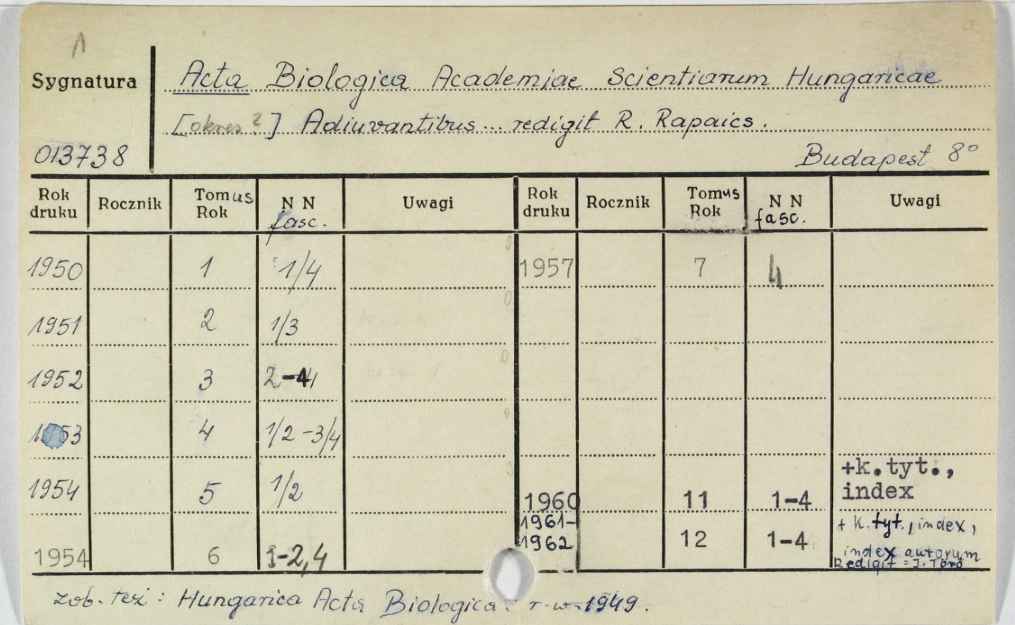 Sygnatura Acta Biologica Academiae Scientiarum Hungaricae
[okres?] Adiuvantibus... redigit R. Rapaics.
013738 Budapest 8°
Rok druku Rocznik Tomus Rok N N fasc. Uwagi Rok druku Rocznik Tomus Rok N N fasc. Uwagi
1950 1 1/4 1957 7 4
1951 2 1/3
1952 3 2-4
1953 4 1/2-3/4
1954 5 1/2 1960 11 1-4 +k.tyt., index
1954 6 1-2,4 1961-1962 12 1-4 + k.tyt., index, index autorum
Redigit = J. Törő
zob. też: Hungarica Acta Biologica r. w. 1949.